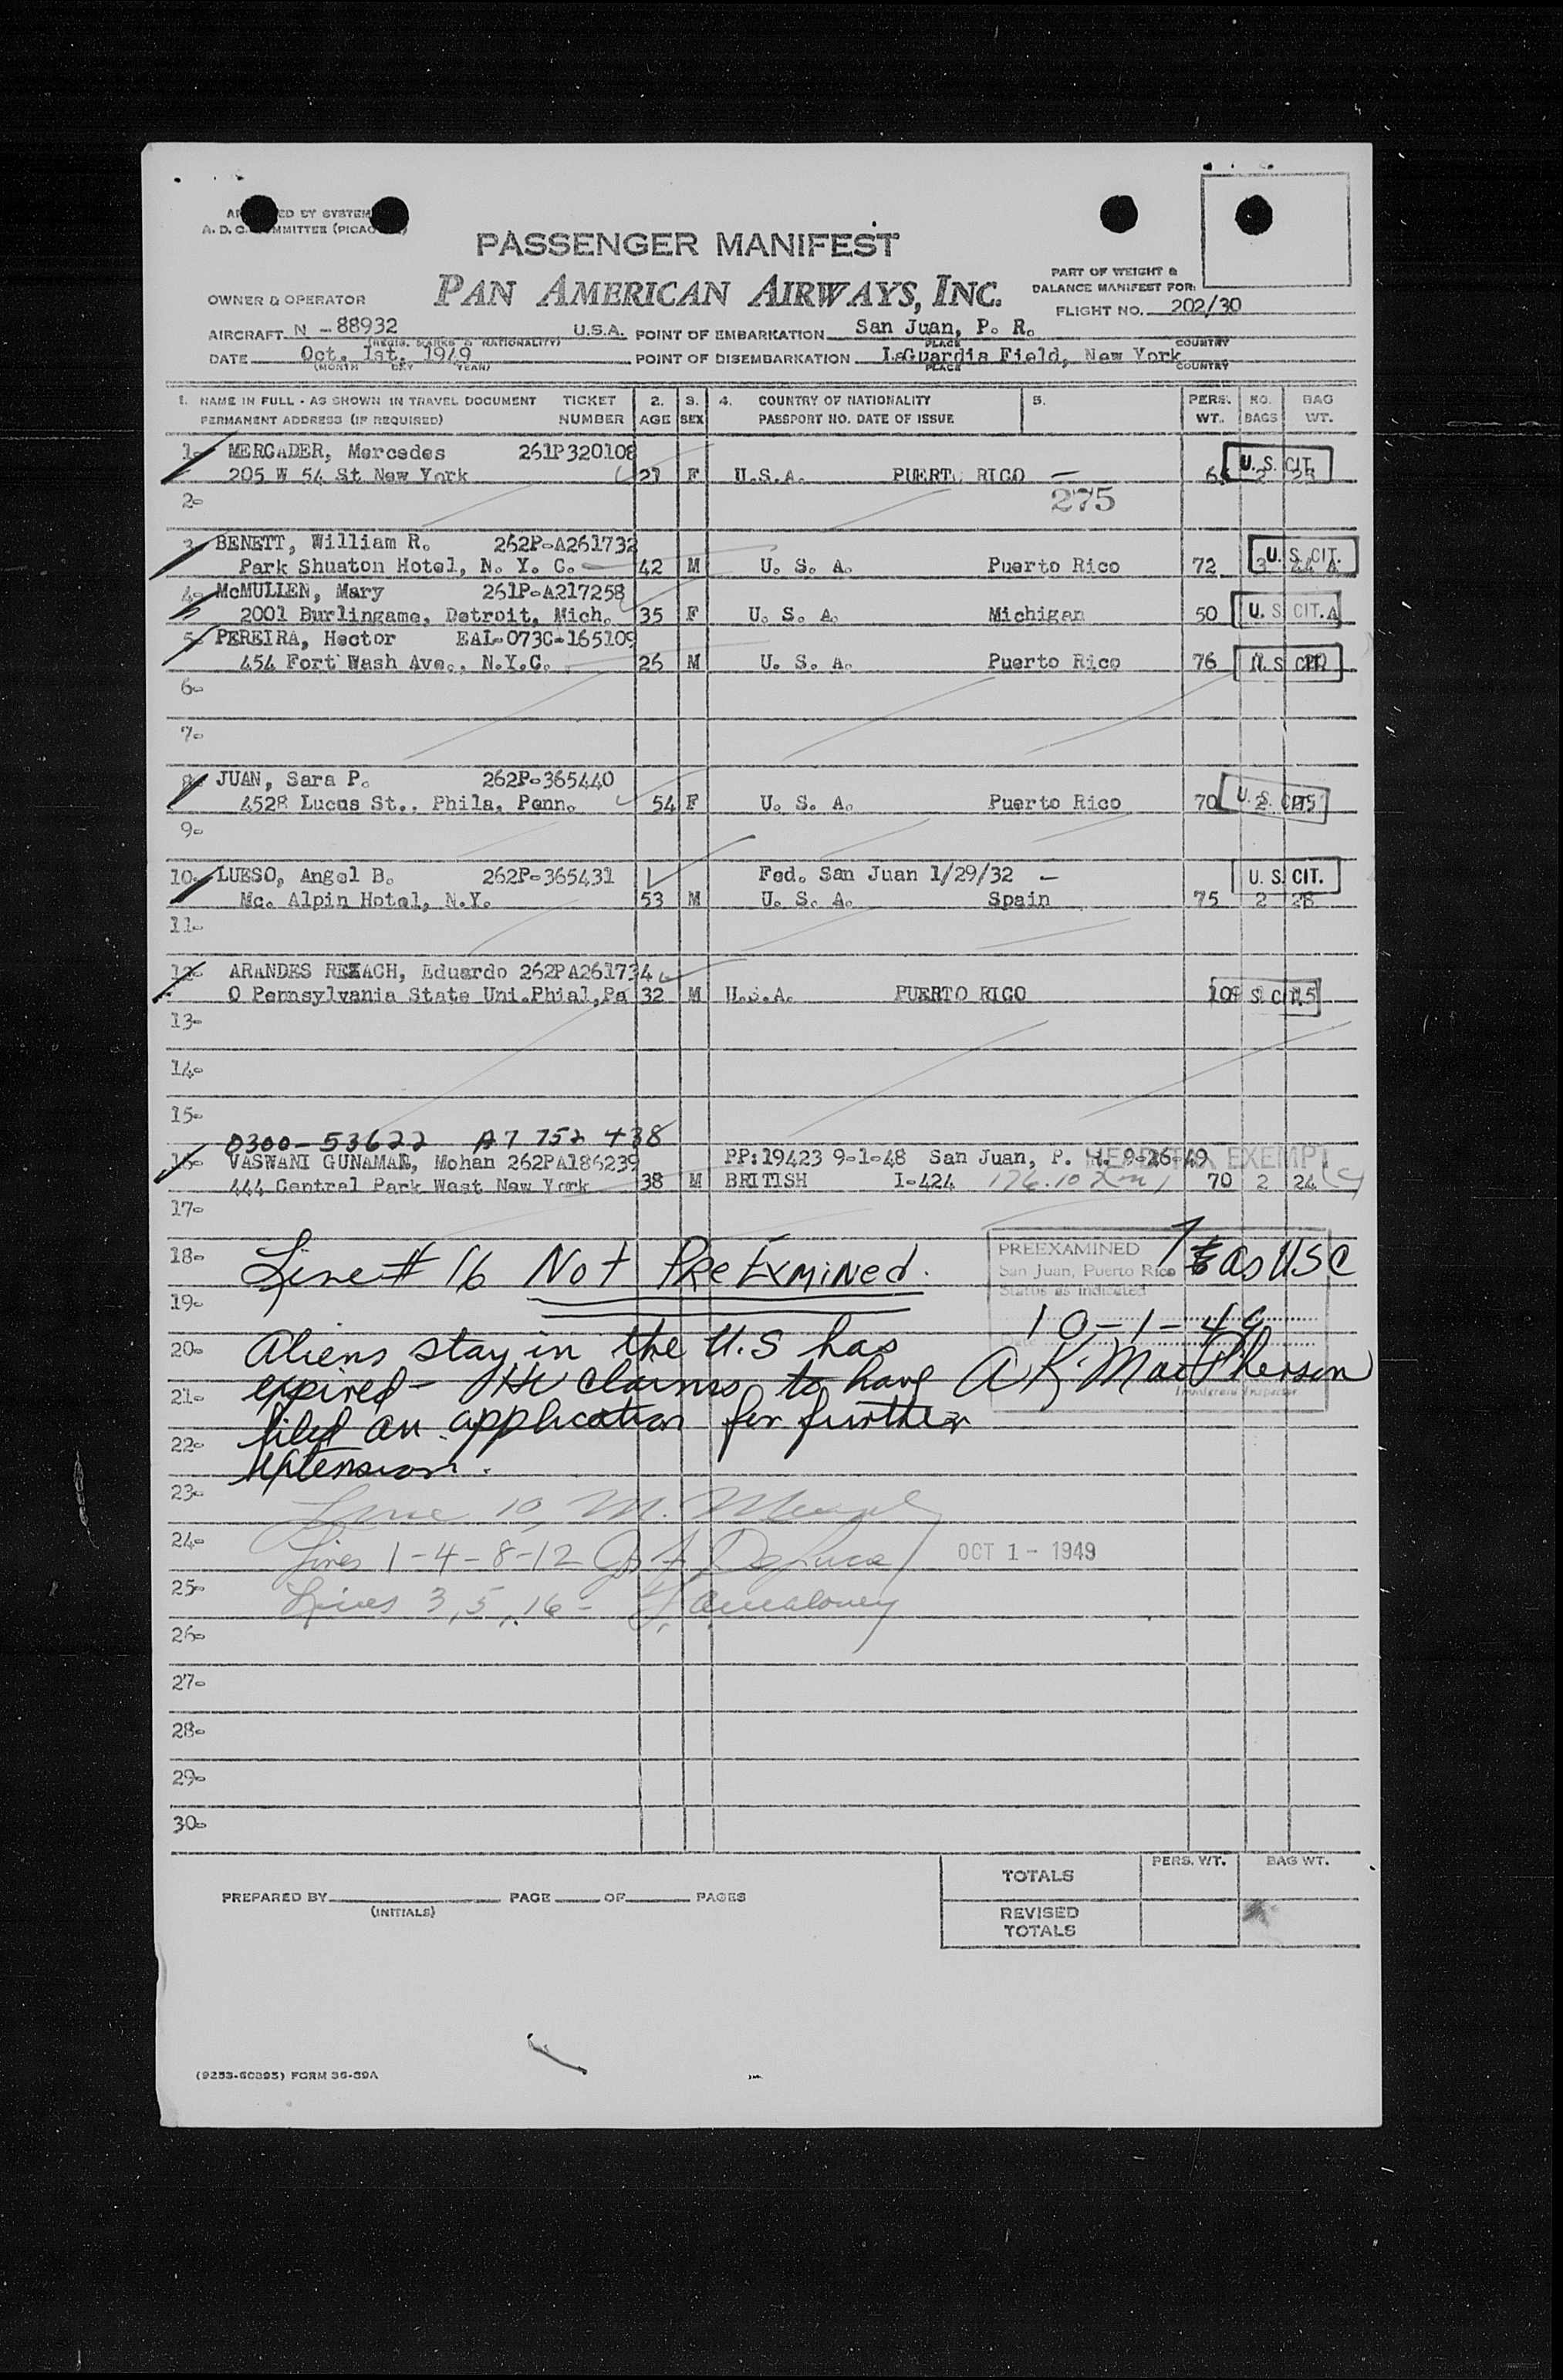 A. D. C.
PASSENGER MANIFEST
PAN AMERICAN AIRWAYS, INC.
PART OF WEIGHT &
BALANCE MANIFEST FOR:
FLIGHT NO. 202/30
OWNER & OPERATOR
AIRCRAFT N - 88932 U.S.A. POINT OF EMBARKATION San Juan, P. R.
(REGIS. MARKS & NATIONALITY) PLACE COUNTRY
DATE Oct. 1st. 1949 POINT OF DISEMBARKATION LaGuardia Field, New York
(MONTH DAY YEAR) PLACE COUNTRY
1. NAME IN FULL - AS SHOWN IN TRAVEL DOCUMENT TICKET 2. 3. 4. COUNTRY OF NATIONALITY 5. PERS. NO. BAG
PERMANENT ADDRESS (IF REQUIRED) NUMBER AGE SEX PASSPORT NO. DATE OF ISSUE WT. BAGS WT.
1- MERCADER, Mercedes 261P320108 U. S. CIT.
205 W 54 St New York 21 F U.S.A. PUERTO RICO —
2- 275
3- BENETT, William R. 262P-A261732 U. S. CIT.
Park Shuaton Hotel, N. Y. C. 42 M U. S. A. Puerto Rico 72
4- McMULLEN, Mary 261P-A217258
2001 Burlingame, Detroit, Mich. 35 F U. S. A. Michigan 50 U. S. CIT.
5- PEREIRA, Hector EAL-073C-165109
454 Fort Wash Ave., N.Y.C. 26 M U. S. A. Puerto Rico 76 U. S. CIT.
6-
7-
8- JUAN, Sara P. 262P-365440
4528 Lucus St., Phila, Penn. 54 F U. S. A. Puerto Rico 70 2 U. S. CIT.
9-
10- LUESO, Angel B. 262P-365431 Fed. San Juan 1/29/32 — U. S. CIT.
Mc. Alpin Hotel, N.Y. 53 M U. S. A. Spain 75 2 28
11-
12- ARANDES REXACH, Eduardo 262PA261734
O Pennsylvania State Uni.Phial,Pa 32 M U.S.A. PUERTO RICO S. CIT.
13-
14-
15-
0300-53622 A7 752 438
16- VASWANI GUNAMAL, Mohan 262PA186239 PP:19423 9-1-48 San Juan, P. R. 9-26-49 HEAD TAX EXEMPT
444 Central Park West New York 38 M BRITISH I-424 176.10 70 2 24
17-
18- Line # 16 Not PreExmined. PREEXAMINED 7 as USC
San Juan, Puerto Rico
Status as indicated
19-
10-1-49
20- Aliens stay in the U.S has
21- expired - He claims to have A K. MacPherson
Immigrant Inspector
filed an application for further
22-
extension.
23- Line 10, M.
24- Lines 1-4-8-12 DeLuca OCT 1 - 1949
25- Lines 3, 5, 16 -
26-
27-
28-
29-
30-
PERS. WT. BAG WT.
TOTALS
PREPARED BY PAGE OF PAGES
(INITIALS)
REVISED
TOTALS
(9253-60395) FORM 36-39A